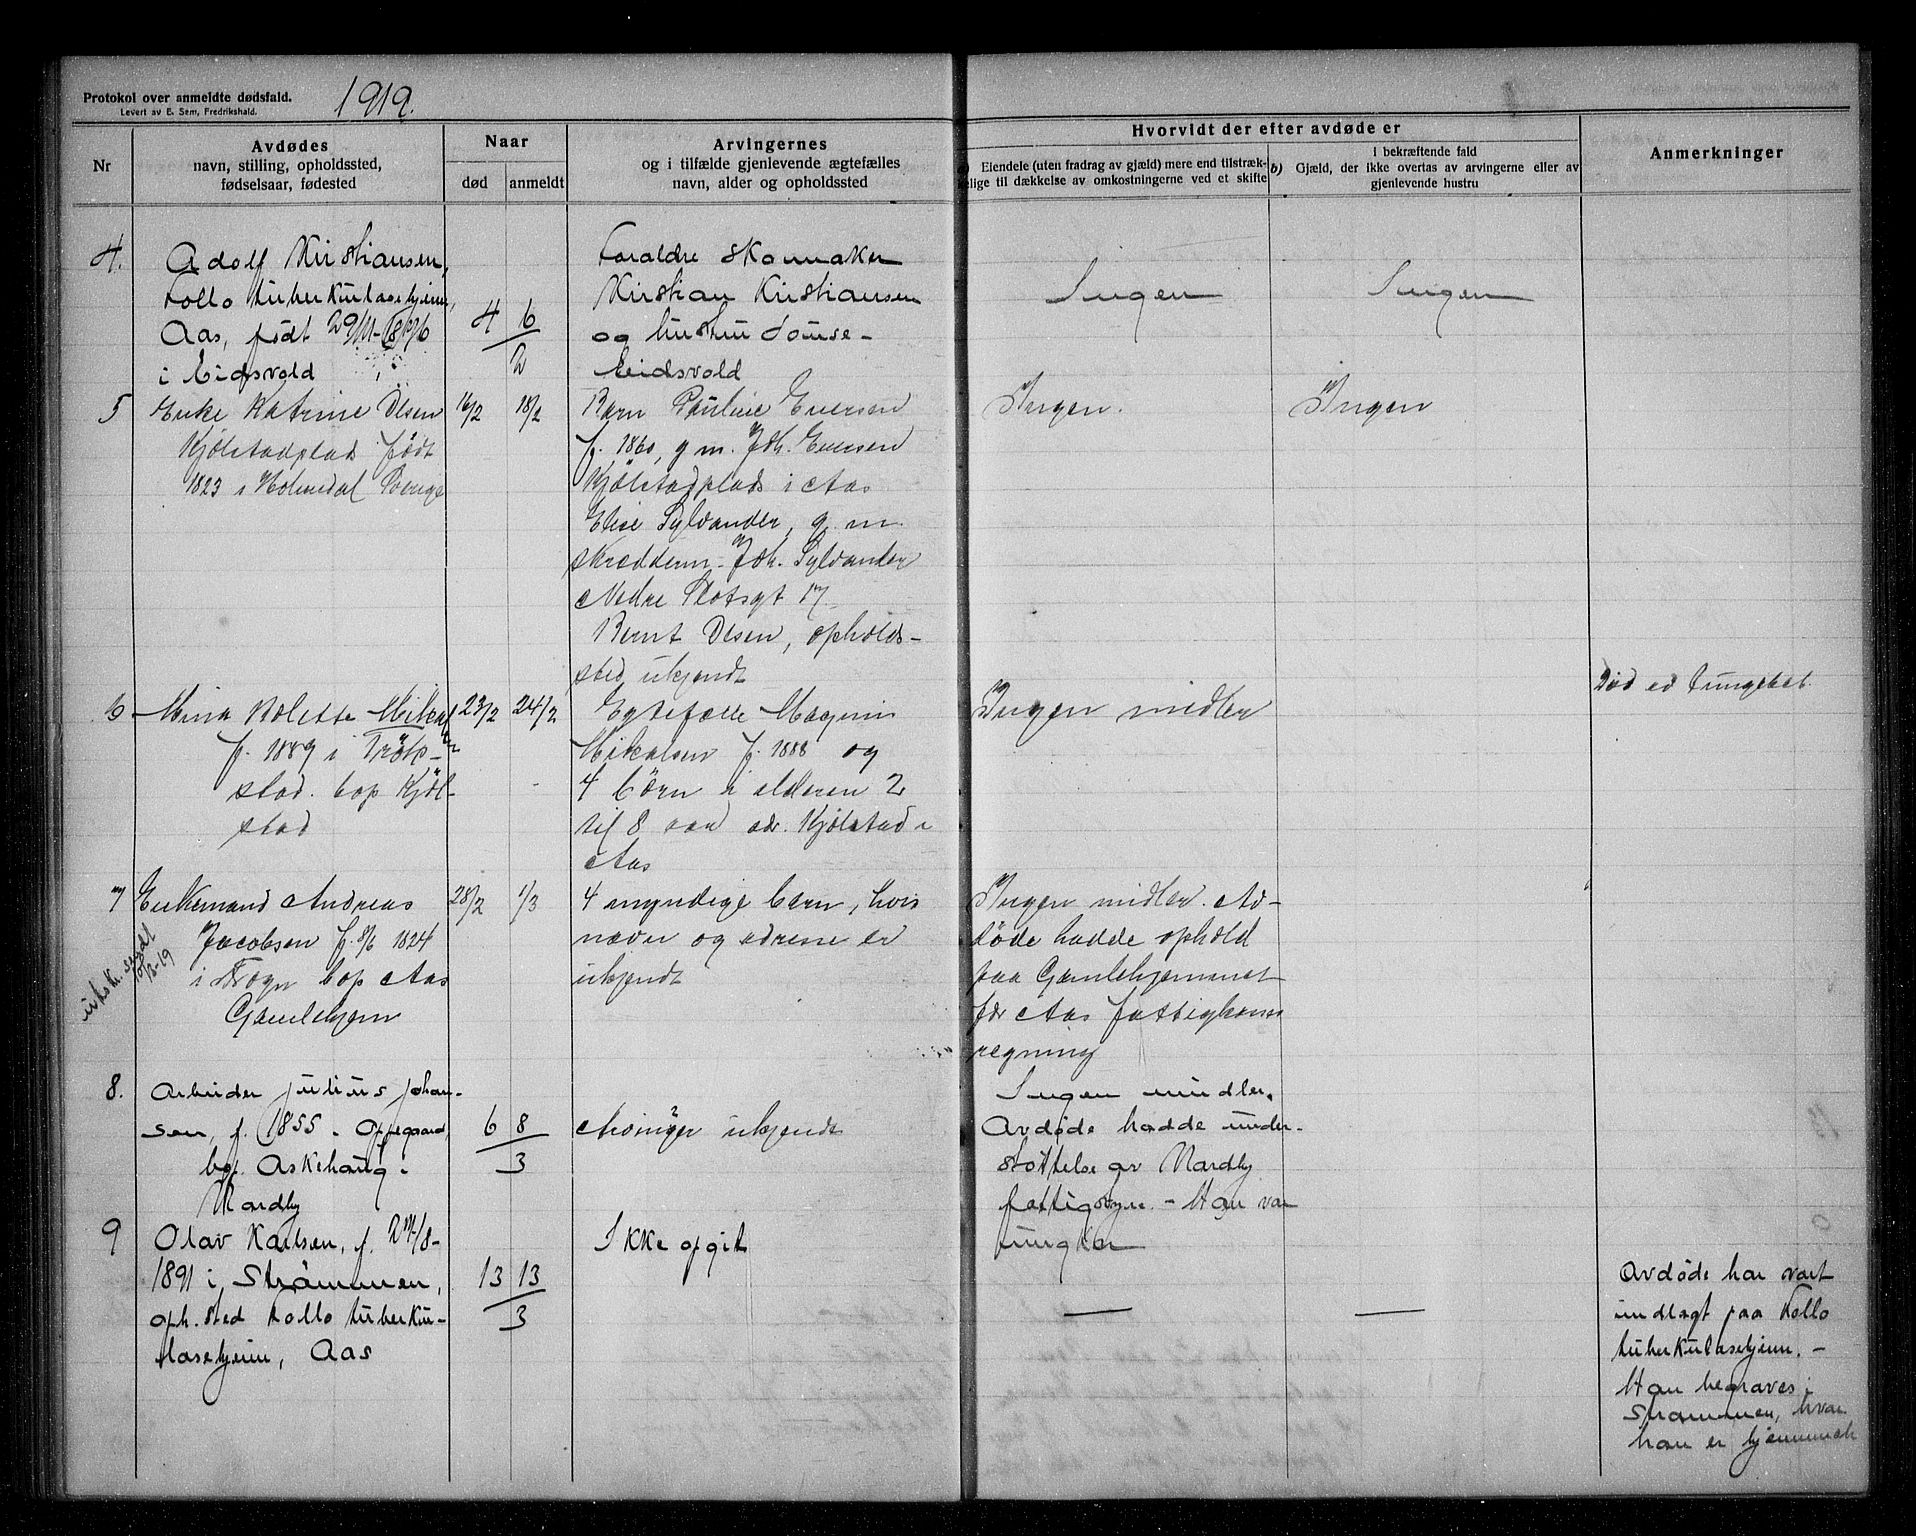 Protokol over anmeldte dødsfald.
Levert av E. Sem, Fredrikshald.
1919.
Nr
Avdødes
navn, stilling, opholdssted,
fødselsaar, fødested
Naar
død
anmeldt
Arvingernes
og i tilfælde gjenlevende ægtefælles
navn, alder og opholdssted
Hvorvidt der efter avdøde er
Eiendele (uten fradrag av gjæld) mere end tilstræk-
kelige til dækkelse av omkostningerne ved et skifte
b)
I bekræftende fald
Gjæld, der ikke overtas av arvingerne eller av
gjenlevende hustru
Anmerkninger
4.
Adolf Kristiansen,
Follo tuberkulosehjem,
Aas, født 29/11-1876
i Eidsvold
4 6
2
Foraldre skomaker
Kristian Kristiansen
og hustru Louise -
Eidsvold
Ingen
Ingen
5
Enke Katrine Olsen
Kjölstadplads født
1823 i Holmedal Sverige
16/2
18/2
Barn Pauline Eversen
f. 1860, g m. Joh. Eversen
Kjölstadplads i Aas
Elise Sylvander, g. m.
skrædderm. Joh. Sylvander
Nedre Slotsgt 17
Bernt Olsen, opholds-
sted ukjendt
Ingen.
Ingen
6
Mina Bolette Mikal
f. 1889 i Trök-
stad. bop Kjöl-
stad
23/2
24/2
Egtefælle Magnus
Mikalsen f. 1888 og
4 börn i alderen 2
til 8 aar adr. Kjölstad i
Aas
Ingen midler
Död ed tungebet.
7
Enkemand Andreas
Jacobsen f. 8/6 1824
i Frogn bop Aas
Gamlehjem
28/2
1/3
4 myndige barn, hvis
navn og adresse er
ukjendt
Ingen midler. Av-
döde hadde ophold
paa Gamlehjemmet
for Aas fattigkoms
regning
8.
Arbeider Julius Johan-
sen, f. 1855 - Oppegaard,
bop. Askehaug -
Nordby
6 8
3
Arvinger ukjendt
Ingen midler.
Avdøde hadde under-
støttelse av Nordby
fattigvæsn. - Han var
ungkar
9
Olav Karlsen, f. 24/8-
1891 i Strømmen,
oph.sted Follo tuberku-
losehjem, Aas
13 13
3
Ikke opgit
Avdøde har vært
indlagt paa Follo
tuberkulosehjem. -
Han begraves i
Strømmen, hvor
han er hjemmeh